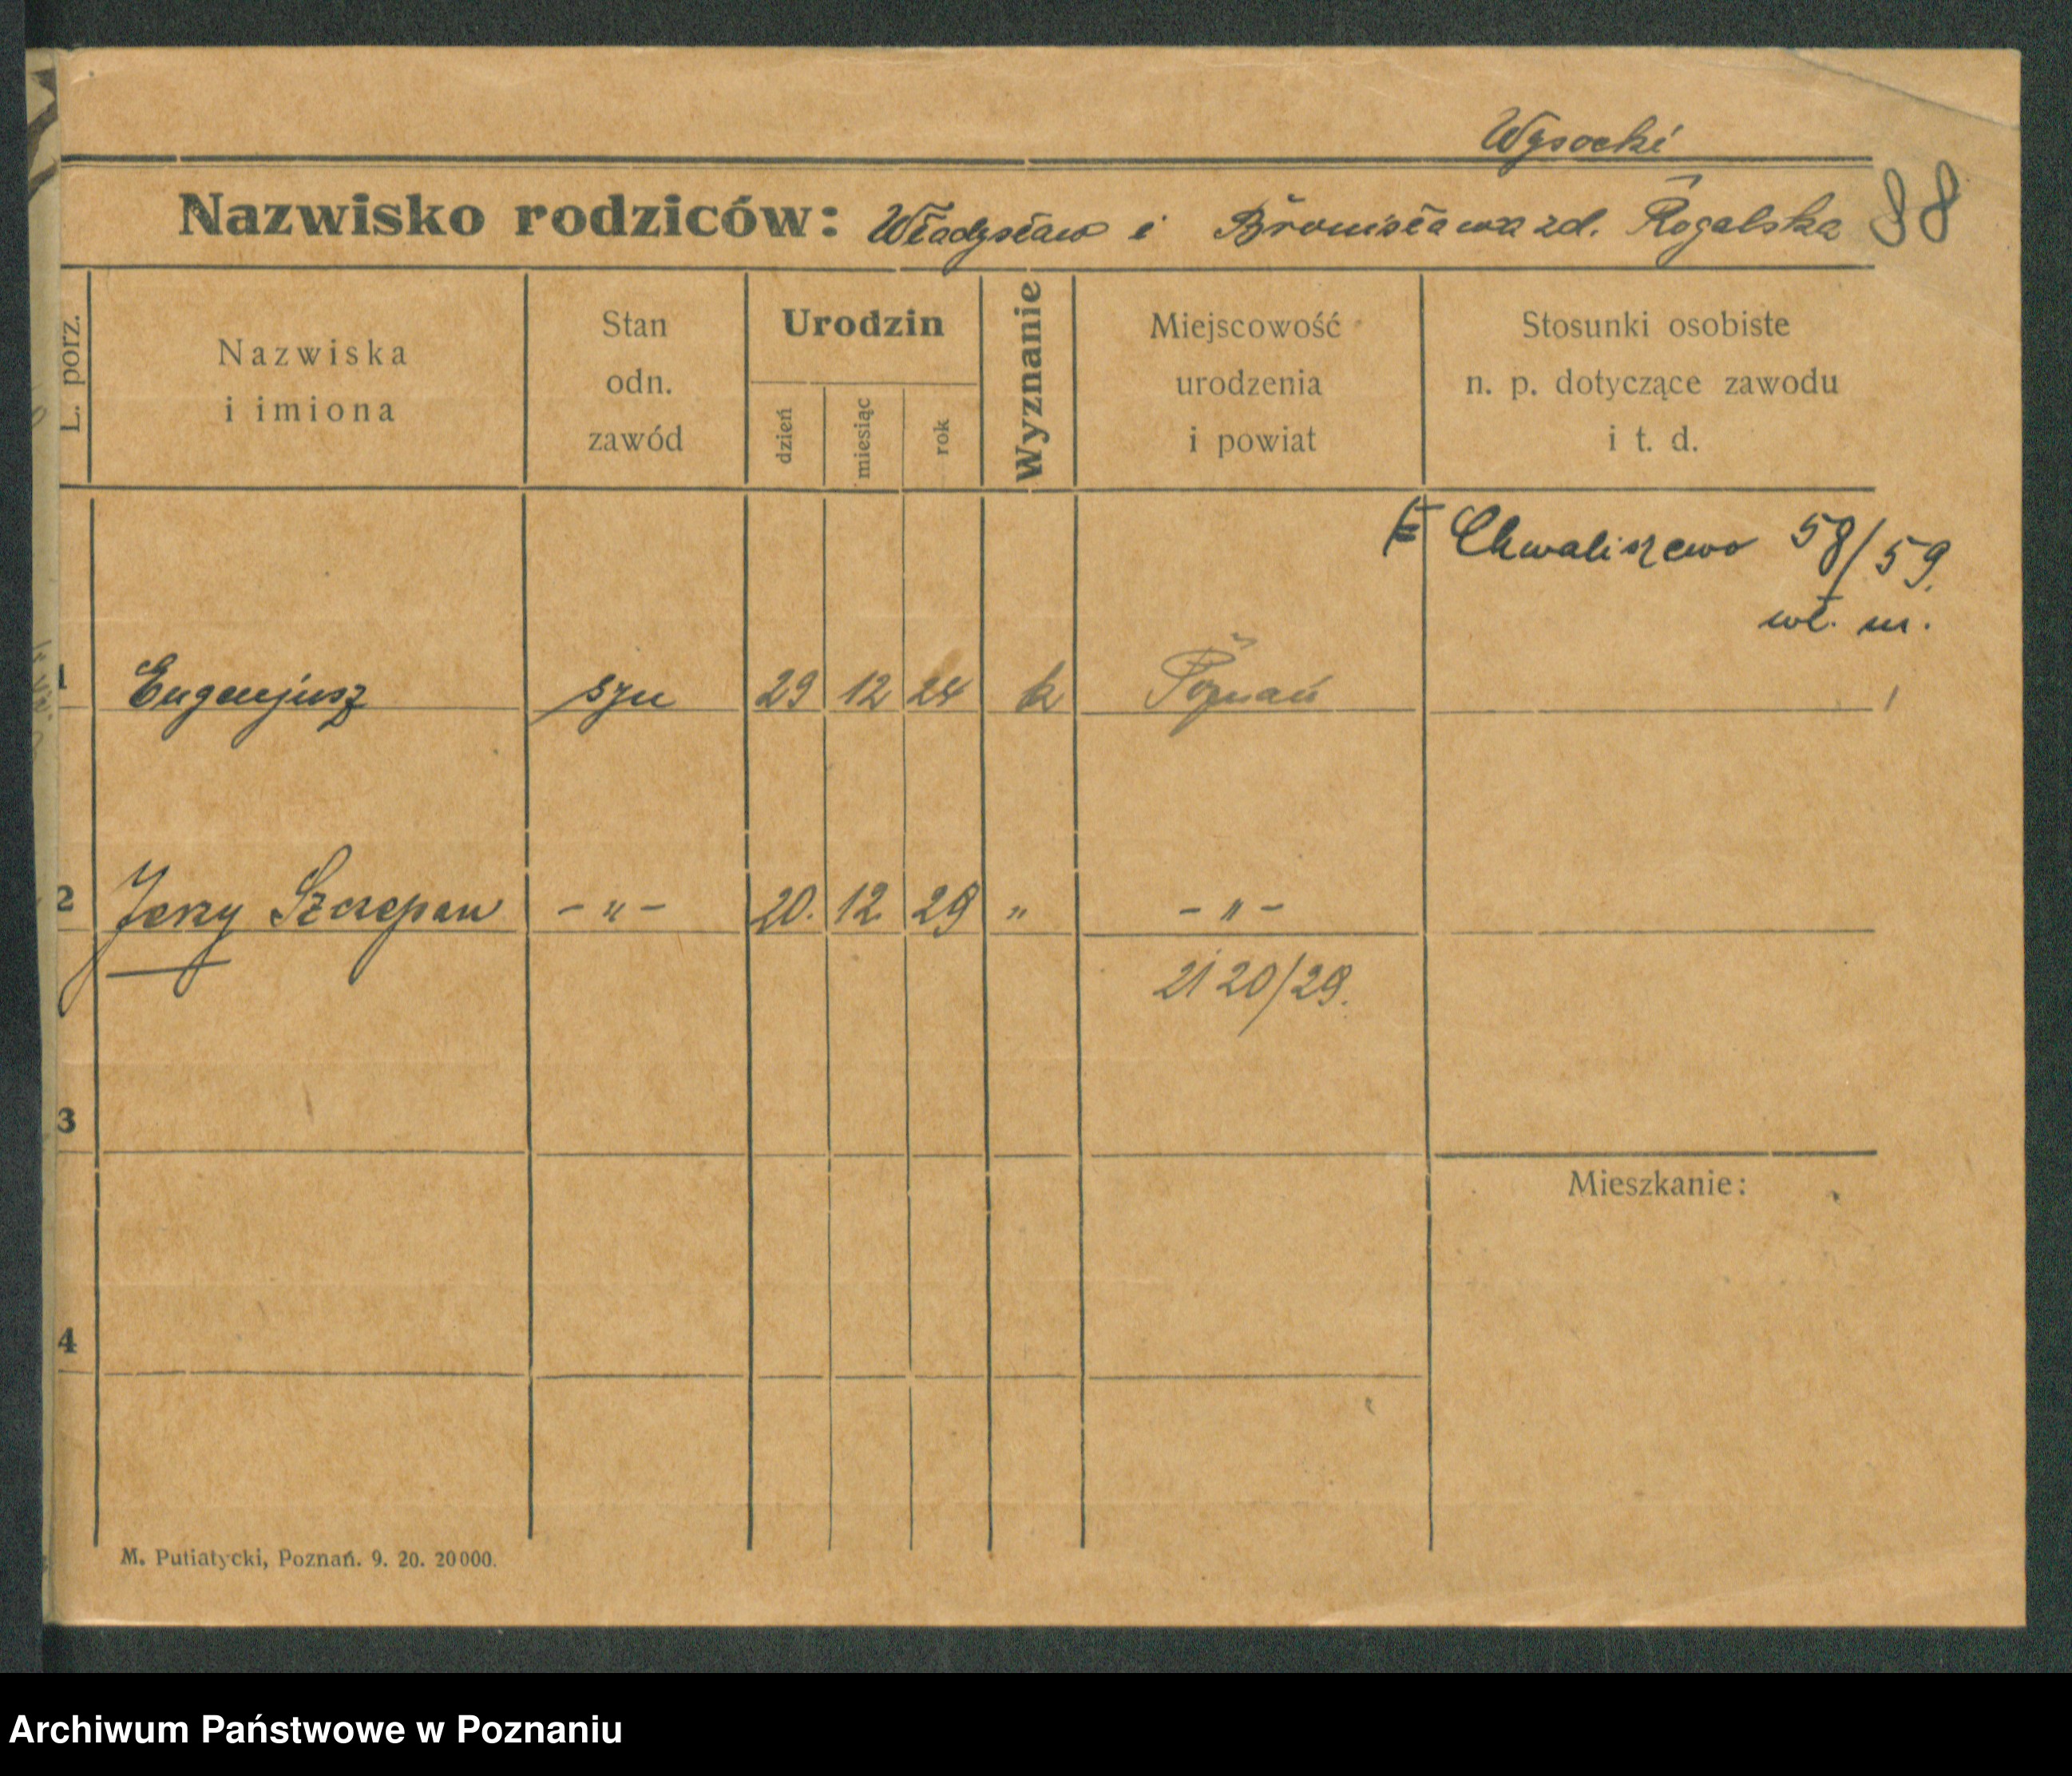 Wysocki
Nazwisko rodziców: Władysław i Bronisława zd. Rogalska 88
L. porz.
Nazwiska
i imiona
Stan
odn.
zawód
Urodzin
dzień
miesiąc
rok
Wyznanie
Miejscowość
urodzenia
i powiat
Stosunki osobiste
n. p. dotyczące zawodu
i t. d.
Chwaliszewo 58/59.
wł. m.
1 Eugenjusz syn 29 12 24 k Poznań
2 Jerzy Szczepan - " - 20. 12. 29 " - " -
2120/29.
3
Mieszkanie:
4
M. Putiatycki, Poznań. 9. 20. 20000.
Archiwum Państwowe w Poznaniu